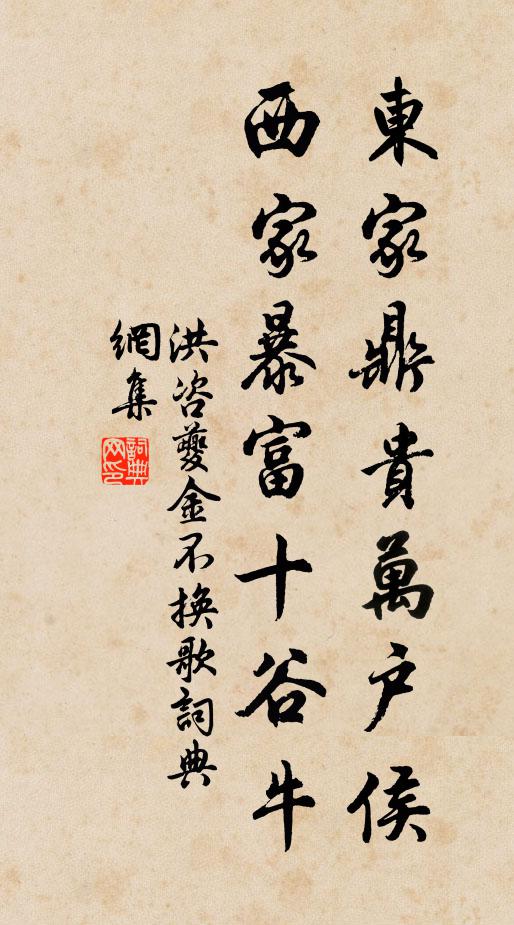 東家鼎貴萬户侯
西家暴富十谷牛
洪咨夔金不换歌詞典
網集
詞典网印